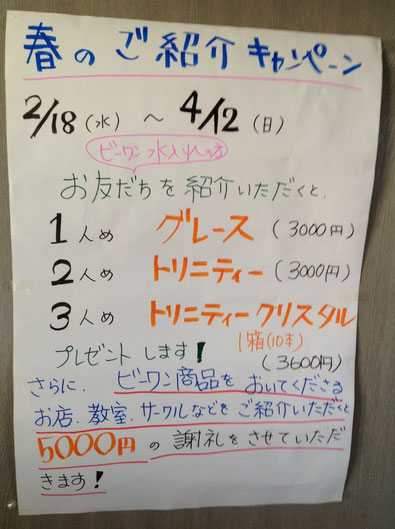 春のご紹介キャンペーン
2/18(水) ~ 4/12(日)
ビーワン水入れの方
お友だちを紹介いただくと、
1人め グレース (3000円)
2人め トリニティー (3000円)
3人め トリニティークリスタル
1箱(10本)
プレゼントします! (3600円)
さらに、ビーワン商品をおいてくださる
お店、教室、サークルなどをご紹介いただくと
5000円の謝礼をさせていただ
きます!